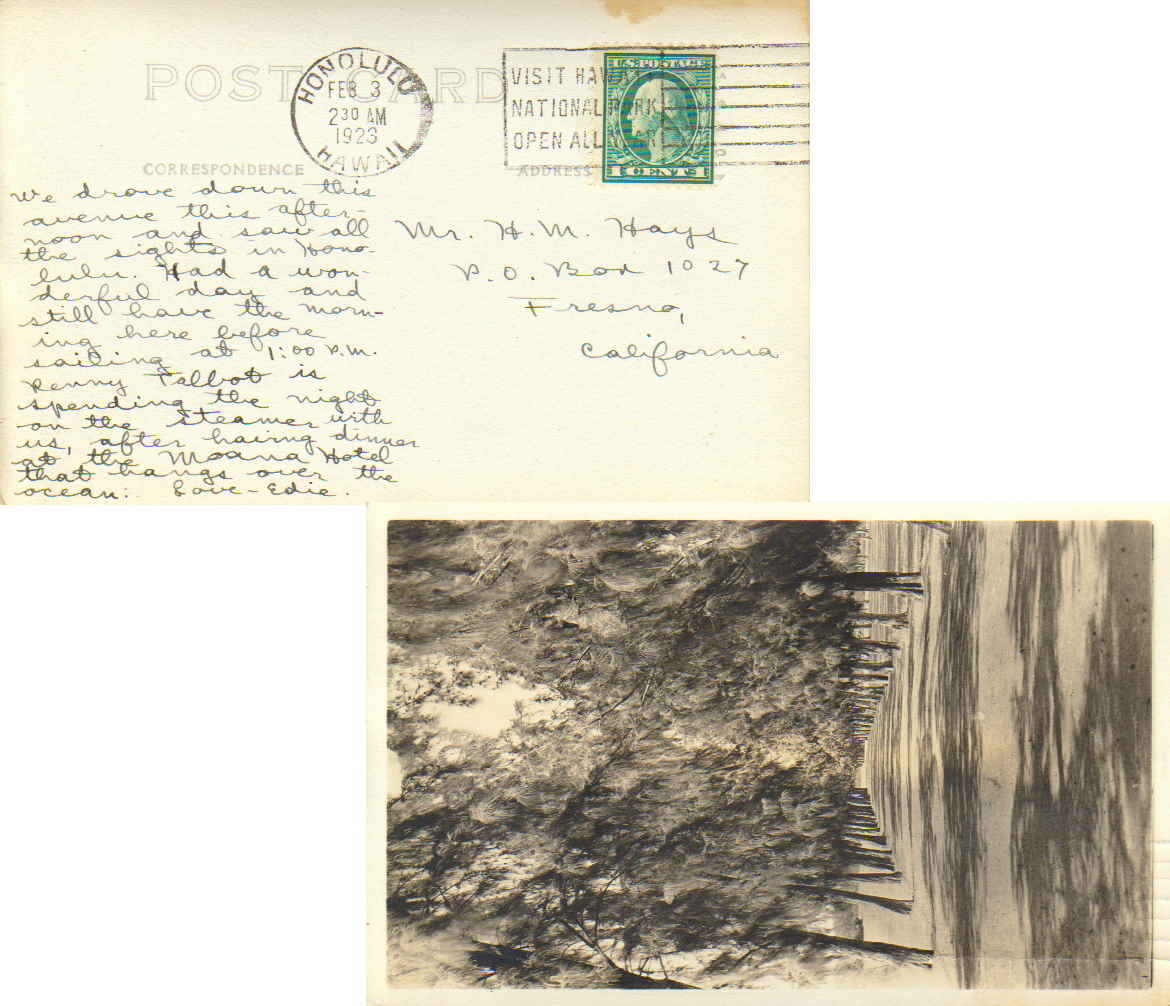 POST CARD
HONOLULU
FEB 3
2 30 AM
1923
HAWAII
VISIT HAWAII
NATIONAL PARK
OPEN ALL YEAR
U.S. POSTAGE
1 CENT 1
CORRESPONDENCE
ADDRESS
We drove down this
avenue this after-
noon and saw all
the sights in Hono-
lulu. Had a won-
derful day and
still have the morn-
ing here before
sailing at 1:00 P.M.
Penny Talbot is
spending the night
on the steamer with
us, after having dinner
at the Moana Hotel
that hangs over the
ocean. Love - Edie.
Mr. H. M. Hays
P.O. Box 1027
Fresno,
California